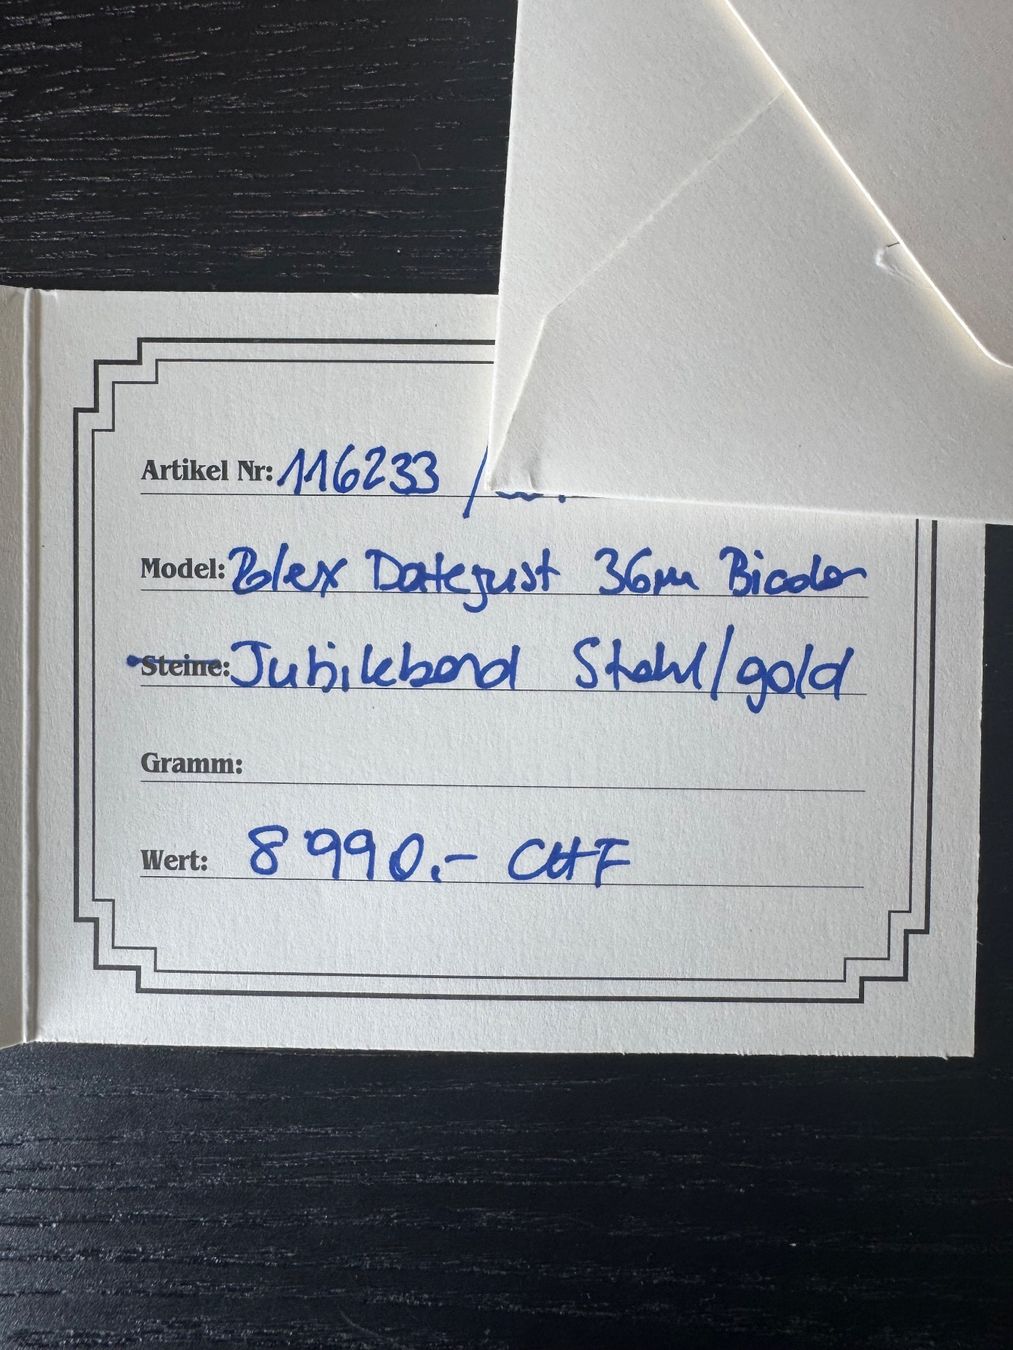 Artikel Nr: 116233 /
Model: Rolex Datejust 36mm Bicolor
Steine: Jubileband Stahl/gold
Gramm:
Wert: 8'990.- CHF